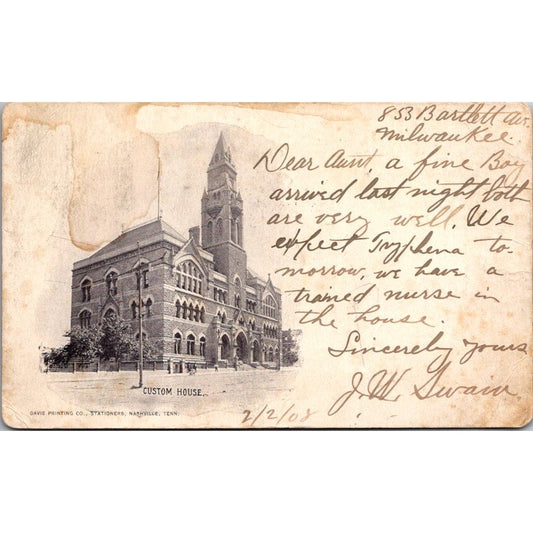 853 Bartlett Av.
Milwaukee
Dear Aunt, a fine Boy
arrived last night both
are very well. We
expect Tryphena to-
morrow, we have a
trained nurse in
the house.
Sincerely yours
J. W. Swain.
2/2/08
CUSTOM HOUSE.
DAVIE PRINTING CO., STATIONERS, NASHVILLE, TENN.